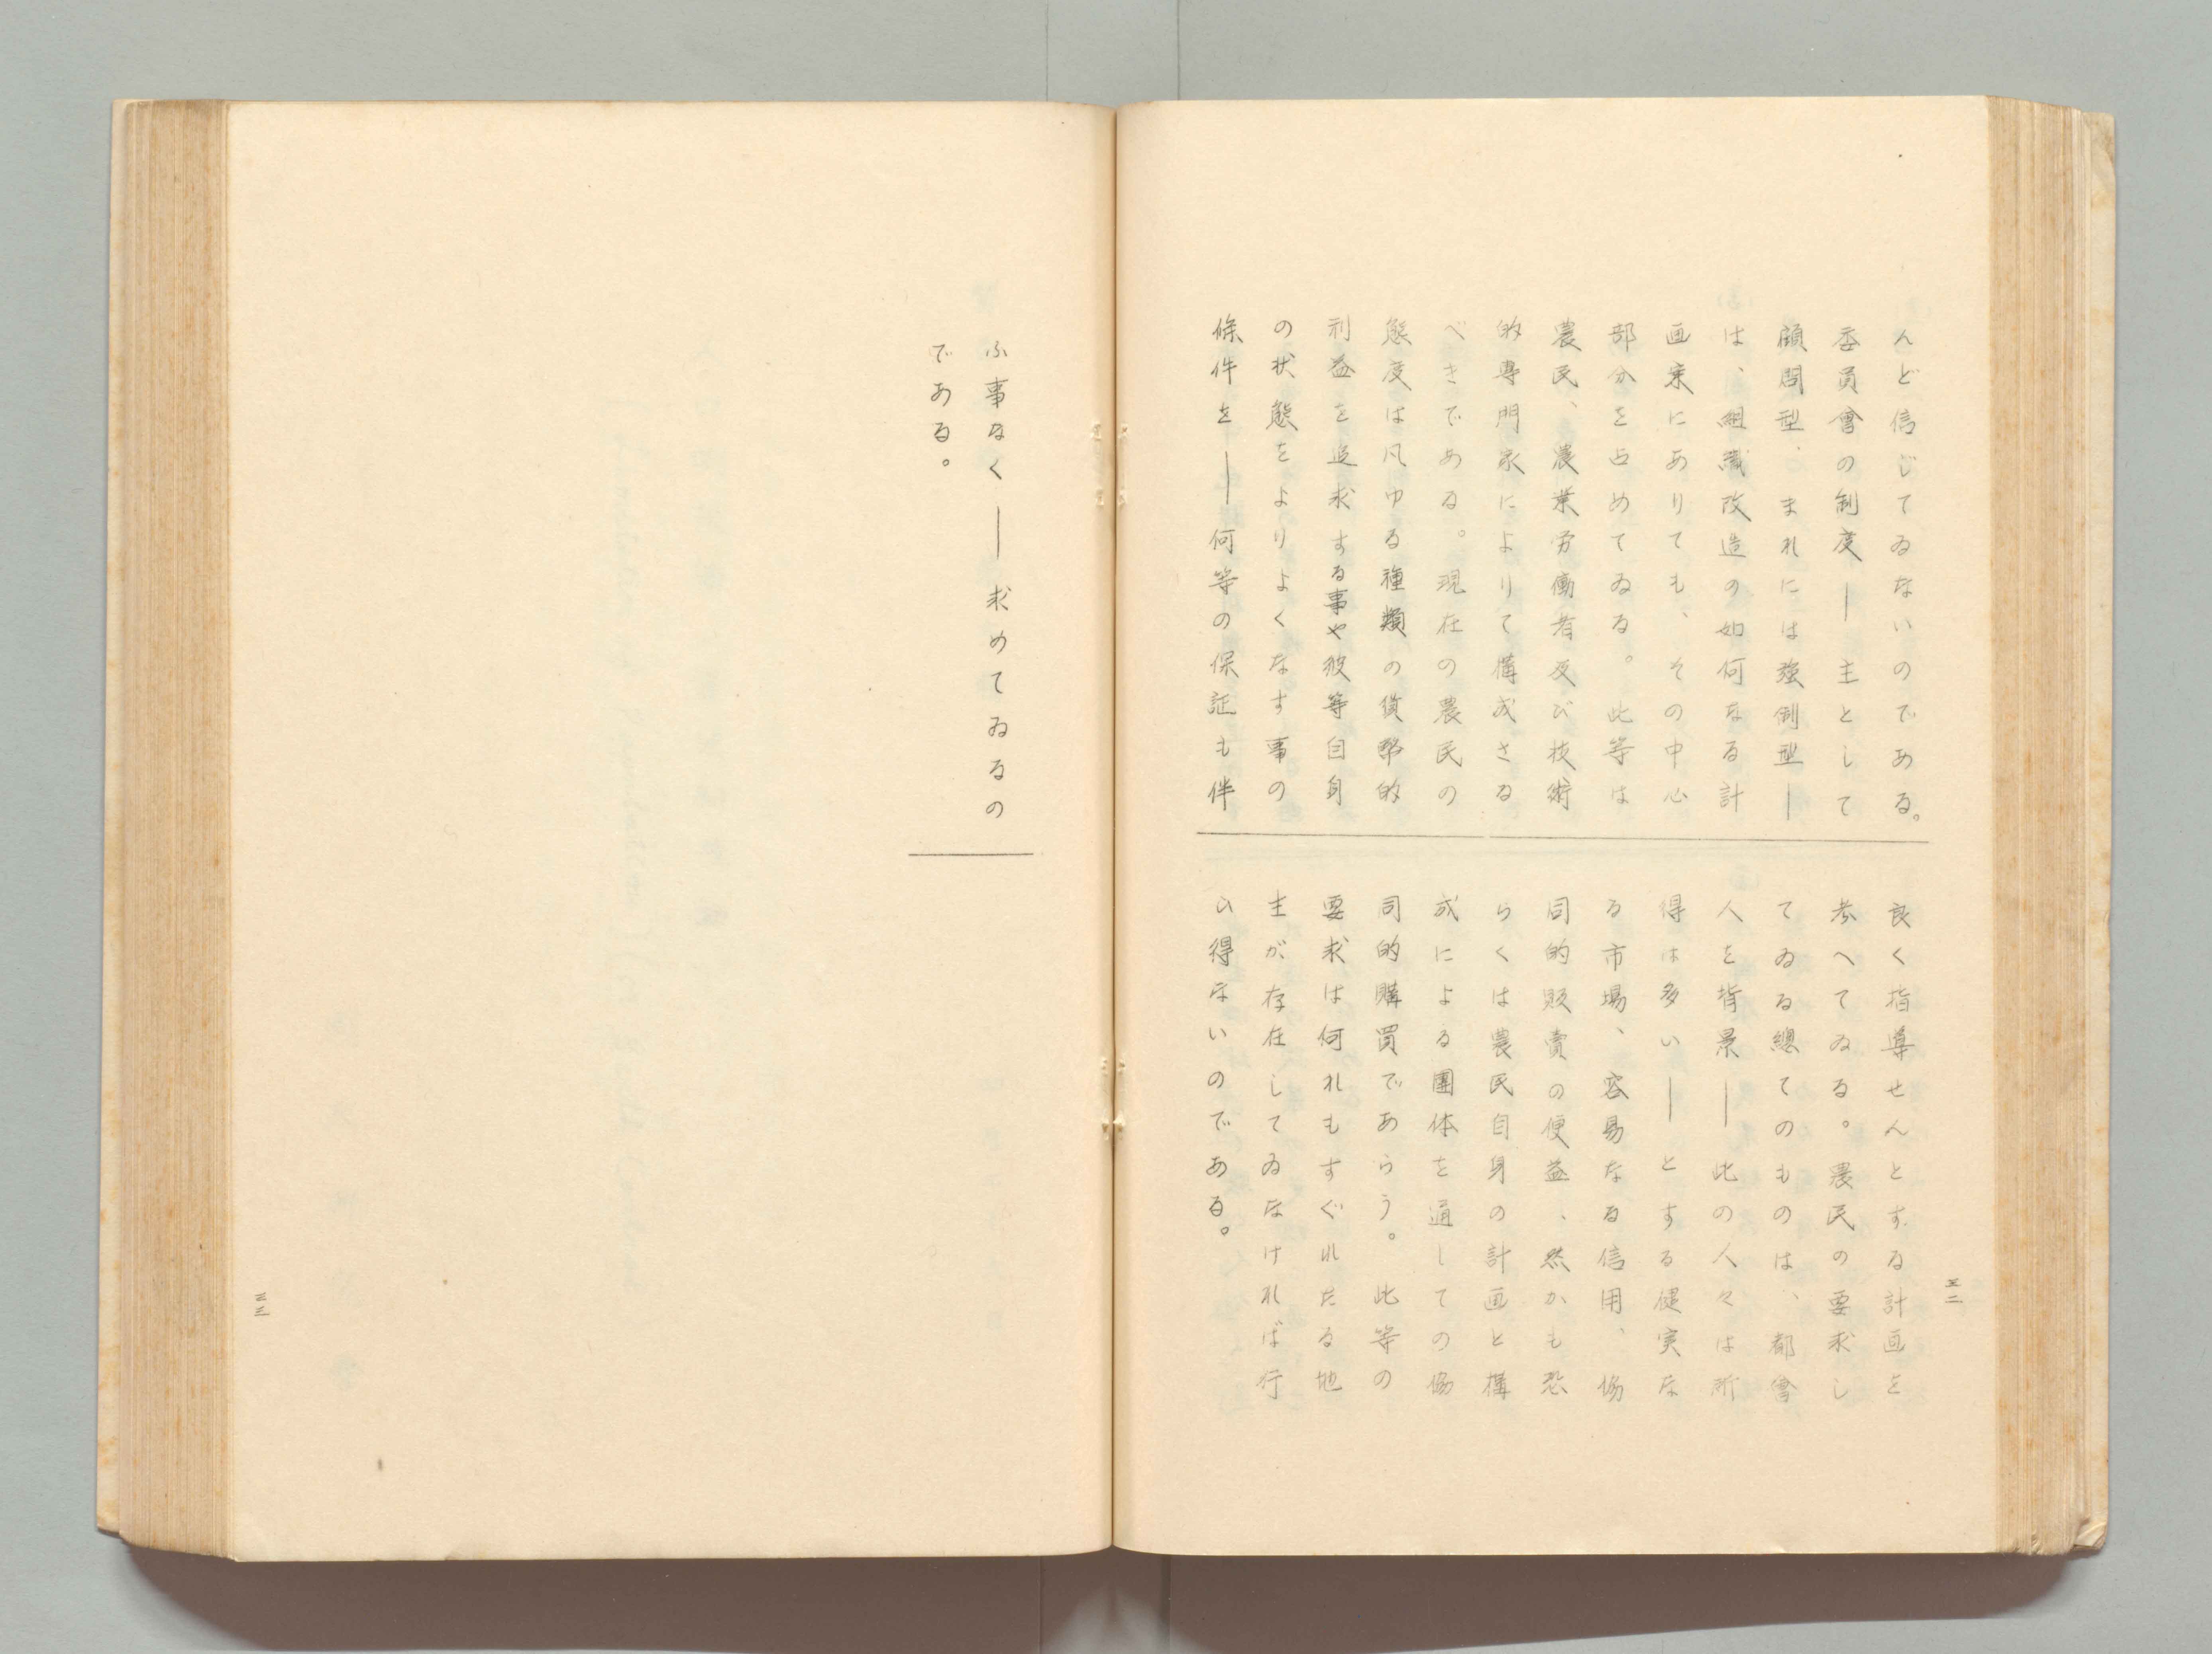 んど信じてゐないのである。
委員會の制度――主として
顧問型、まれには強制型――
は、組織改造の如何なる計
画案にありても、その中心
部分を占めてゐる。此等は
農民、農業労働者及び技術
的専門家によりて構成さる
べきである。現在の農民の
態度は凡ゆる種類の貨幣的
利益を追求する事や彼等自身
の状態をよりよくなす事の
條件を――何等の保証も伴
良く指導せんとする計画を
考へてゐる。農民の要求し
てゐる總てのものは、都會
人を背景――此の人々は所
得は多い――とする健実な
る市場、容易なる信用、協
同的販賣の便益、然かも恐
らくは農民自身の計画と構
成による團体を通しての協
同的購買であらう。此等の
要求は何れもすぐれたる地
主が存在してゐなければ行
ひ得ないのである。
三二
ふ事なく――求めてゐるの
である。
三三